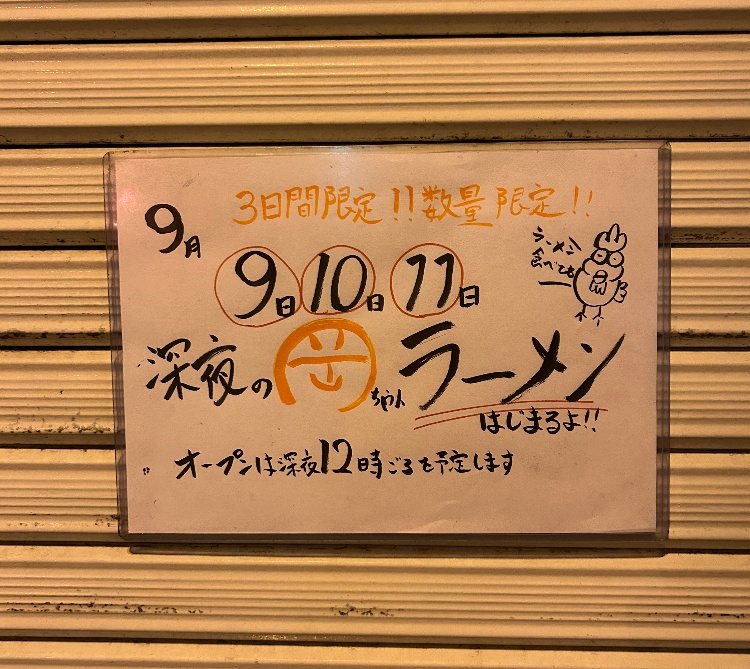 3日間限定!!数量限定!!
9月
9日10日11日
ラーメン
食べてもー
深夜の岡ちゃんラーメン
はじまるよ!!
オープンは深夜12時ごろを予定します